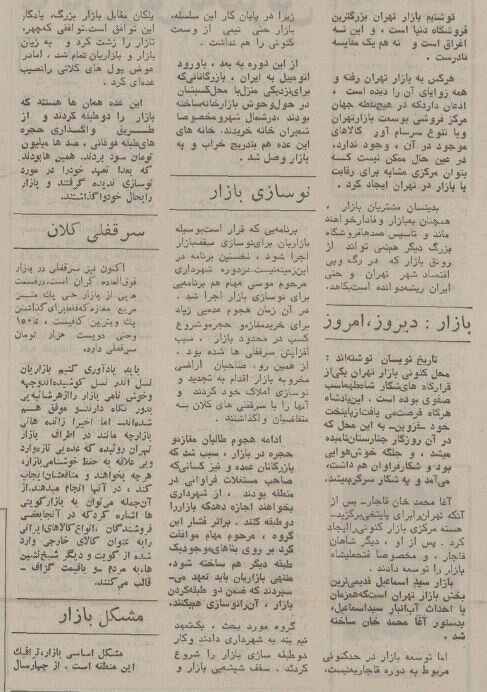 نوشتیم بازار تهران بزرگترین
فروشگاه دنیا است ، و این نه
اغراق است و نه هم یک مقایسه
نادرست .
هرکس به بازار تهران رفته و
همه زوایای آن را دیده است ،
اذعان دارد که در هیچ نقطه جهان
مرکز فروشی بوسعت بازار تهران
و با تنوع سرسام آور کالاهای
موجود در آن ، وجود ندارد.
در عین حال ممکن نیست که
بتوان مرکزی مشابه برای رقابت
با بازار در تهران ایجاد کرد .
بدینسان مشتریان بازار ،
همچنان به بازار وفادار خواهند
ماند و تاسیس صدها فروشگاه
بزرگ دیگر هم نمی تواند از
رونق بازار که در رگ و پی
اقتصاد شهر تهران و حتی
ایران ریشه دوانده است بکاهد.
بازار : دیروز، امروز
تاریخ نویسان نوشته‌اند :
محل کنونی بازار تهران یکی از
قرارگاه های شکار شاه طهماسب
صفوی بوده است . این پادشاه
هرگاه فرصت می یافت از پایتخت
خود – قزوین – به این محل که
در آن روزگار چنارستان نامیده
میشد ، و جلگه خوش هوایی
بود و شکار فراوان هم داشت،
می آمد و به شکار سرگرم میشد.
آغا محمد خان قاجار پس از
آنکه تهران را برای پایتختی برگزید
هسته مرکزی بازار کنونی را ایجاد
کرد . پس از او ، دیگر شاهان
قاجار ، و مخصوصا فتحعلیشاه
بازار را توسعه دادند .
بازار سید اسماعیل قدیمی ترین
بخش بازار تهران است که همزمان
با احداث آب انبار سید اسماعیل،
بدستور آغا محمد خان ساخته
شد .
اما توسعه بازار در حد کنونی
مربوط به دوره قاجاریه نیست،
زیرا در پایان کار این سلسله،
بازار حتی نیمی از وسعت
کنونی را هم نداشت .
از این دوره به بعد ، با ورود
اتومبیل به ایران ، بازرگانانی که
برای نزدیکی منزل با محل کسبشان
در حول و حوش بازار خانه ساخته
بودند ، در شمال شهر و مخصوصا
شمیران خانه خریدند. خانه های
این عده هم بتدریج خراب و به
بازار وصل شد .
نوسازی بازار
برنامه یی که قرار است بوسیله
بازاریان برای نوسازی سقف بازار
اجرا شود ، نخستین برنامه در
این زمینه نیست. در دوره شهرداری
مرحوم موسی مهام هم برنامه یی
برای نوسازی بازار اجرا شد .
در آن زمان هجوم عده یی زیاد
برای خرید مغازه و حجره و شروع
کسب در محدود بازار ، سبب
افزایش سرقفلی ها شده بود .
از همین رو، صاحبان اراضی
مخروبه بازار اقدام به تجدید و
نوسازی املاک خود کردند و
آنها را با سرقفلی های کلان به
متقاضیان واگذاشتند .
ادامه هجوم طالبان مغازه و
حجره در بازار ، سبب شد که
بازرگانان عمده و نیز کسانی که
صاحب مستغلات فراوانی در
منطقه بودند ، از شهرداری
بخواهند اجازه دهد که بازار را
دو طبقه کنند . براثر فشار این
گروه ، مرحوم مهام موافقت
کرد بر روی بناهای موجود یک
طبقه دیگر هم ساخته شود،
منتهی بازاریان باید تعهد می–
سپردند که ضمن دو طبقه کردن
بازار ، آن را نوسازی هم بکنند.
گروه مورد بحث ، یک تعهد
نیم بند به شهرداری دادند و کار
دو طبقه سازی بازار را شروع
کردند . سقف شیشه یی بازار و
پاکان مقابل بازار بزرگ، یادگار
این توافق است. توافقی که چهره
بازار را زشت کرد و به زیان
بازار و بازاریان تمام شد ، اما در
عوض پول های کلانی را نصیب
عده‌ای کرد .
این عده همان ها هستند که
بازار را دو طبقه کردند و از
طریق واگذاری حجره
های طبقه فوقانی ، صدها میلیون
تومان سود بردند. همین ها بودند
که بعدا تعهد خود را در مورد
نوسازی ندیده گرفتند و بازار
را بحال خود واگذاشتند.
سرقفلی کلان
اکنون نیز سرقفلی در بازار
فوق العاده گران است. در قسمت
هایی از بازار حتی یک متر
مربع مغازه که فقط برای گذاشتن
یک ویترین کافیست ، تا ۱۵۰
وحتی دویست هزار تومان
سرقفلی دارد.
باید یادآوری کنیم بازاریان
نسل اندر نسل کوشیده‌اند وجهه
و خوش نامی بازار را از هر شائبه یی
بدور نگاه دارند و موفق هم
شده‌اند، اما اخیرا زائده هایی
بازارچه مانند در اطراف بازار
تهران روئیده که عده یی تازه وارد
و بی علاقه به حفظ خوشنامی بازار،
هرچه بخواهند و منافعشان ایجاب
کند ، در آنها انجام میدهند. از
آن جمله می توان به بازار کویتی
ها اشاره کرد که در آنجا بعضی
فروشندگان ، انواع کالاهای ایرانی
را به عنوان کالای خارجی وارد
شده از کویت و دیگر شیخ نشین
ها، به مردم – و باقیمت گزاف –
قالب می کنند.
مشکل بازار
مشکل اساسی بازار، ترافیک
این منطقه است . از چهار سال